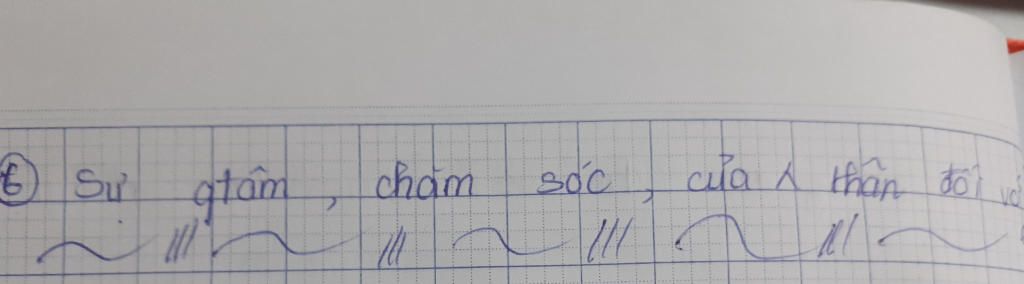 ⑥ Sự qtâm, chăm sóc, của ʌ thân đối với